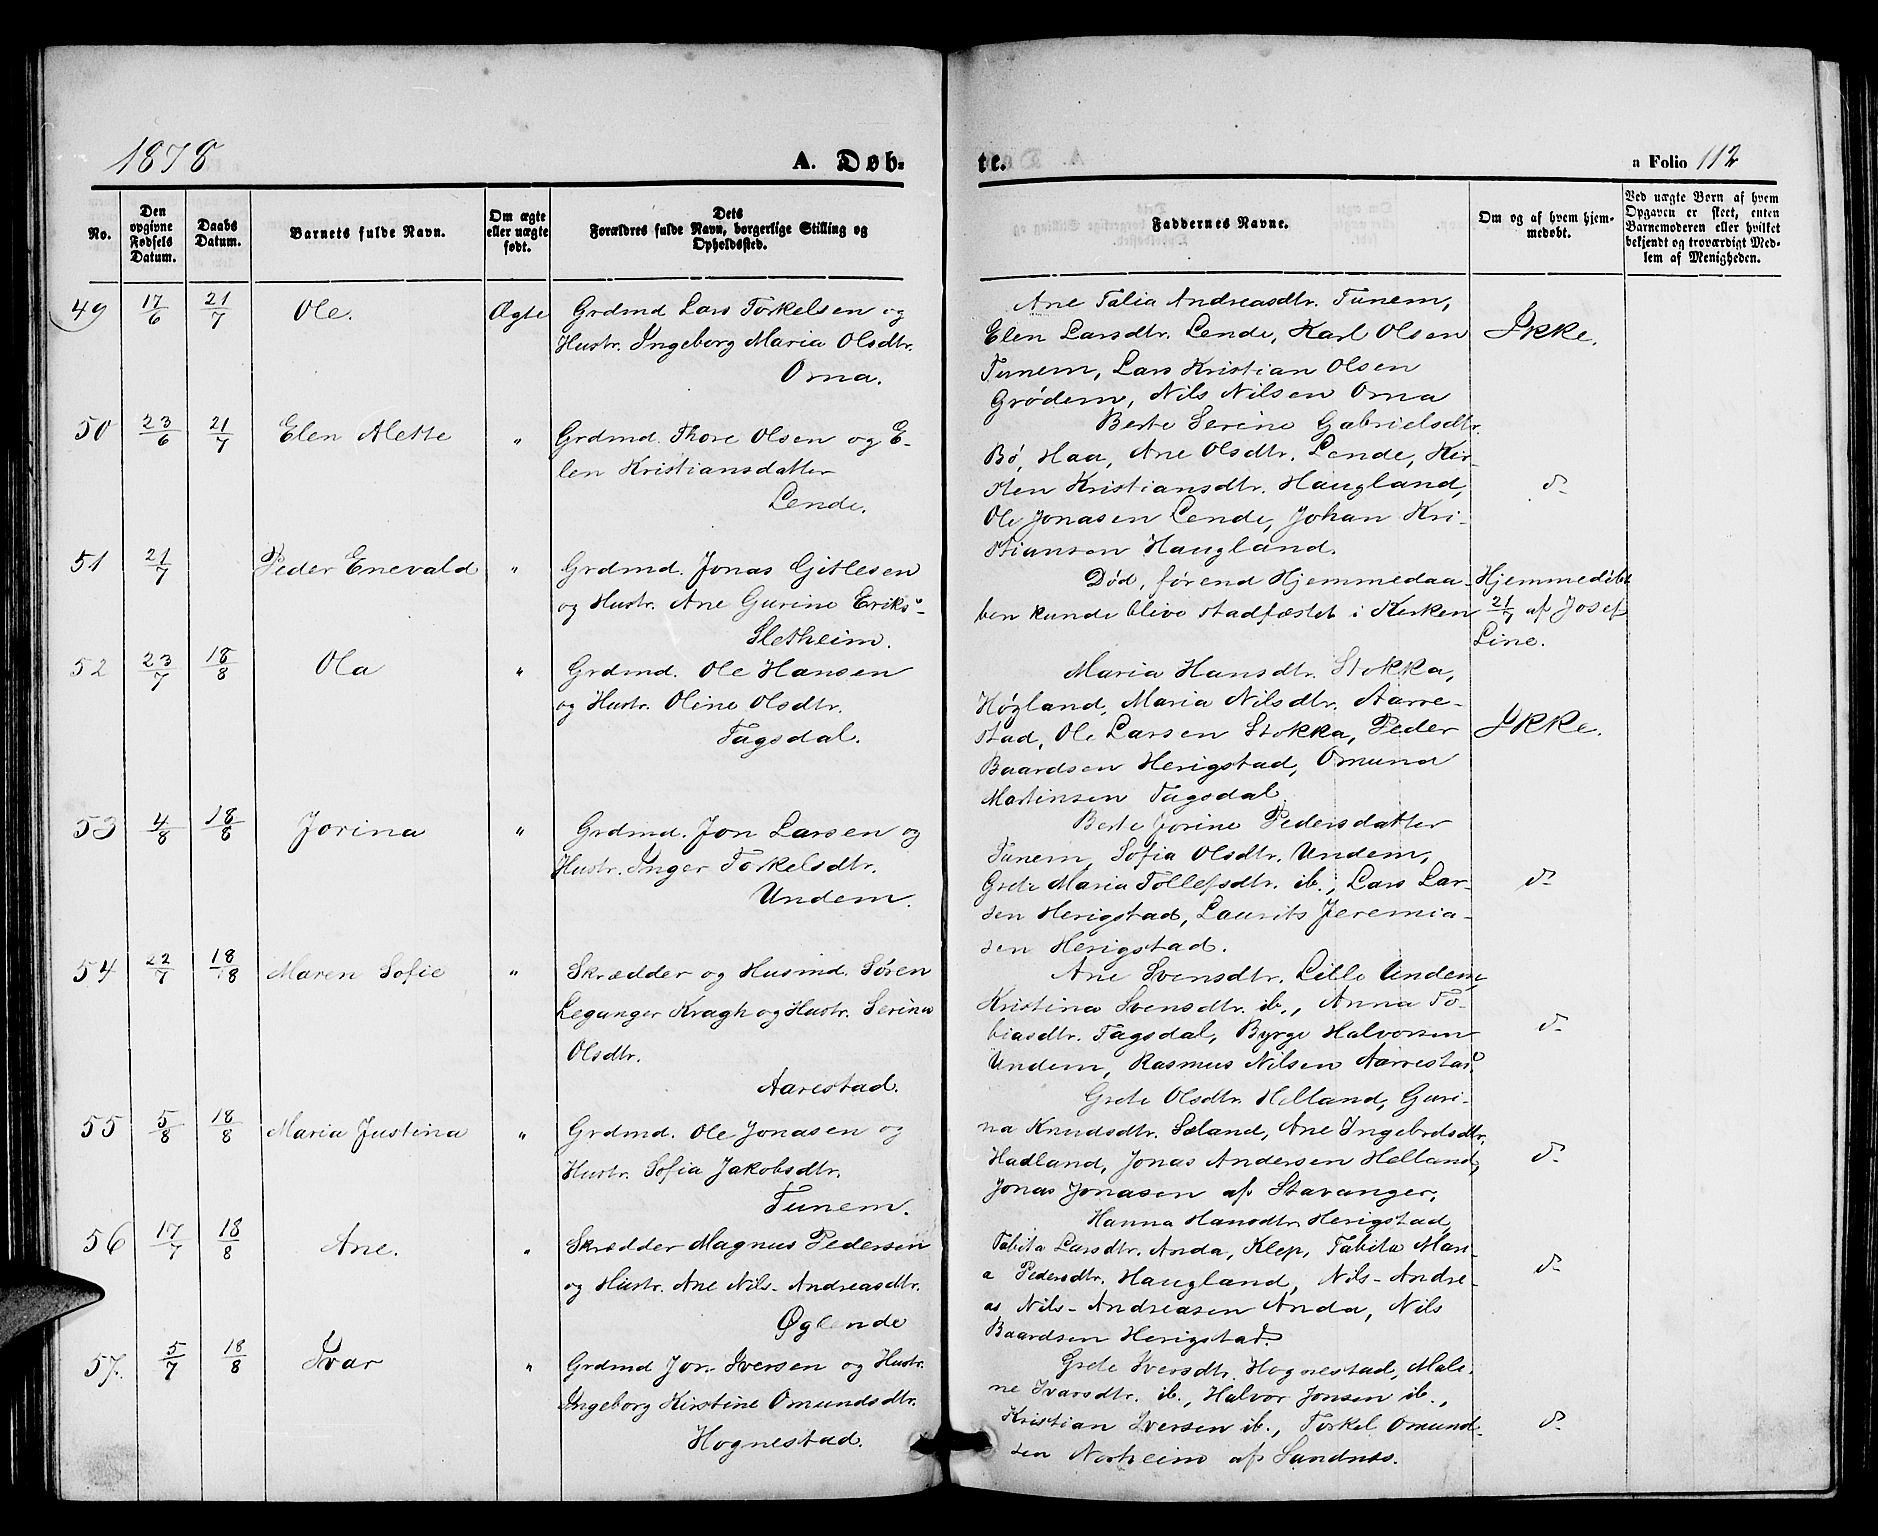 1878
A. Døb-
No.
Den opgivne Fødsels Datum.
Daabs Datum.
Barnets fulde Navn.
Om ægte eller uægte født.
Dets
Forældres fulde Navn, borgerlige Stilling og
Opholdssted.
49 17/6 21/7 Ole. Ægte Grdmd Lars Torkelsen og
Hustr. Ingeborg Maria Olsdtr.
Orna.
50 23/6 21/7 Elen Alette " Grdmd. Thore Olsen og E-
len Kristiansdatter
Lende.
51 21/7 Peder Enevald " Grdmd. Jonas Gitlesen
og Hustr. Ane Gurine Eriks-
Sletheim.
52 23/7 18/8 Ola " Grdmd. Ole Hansen
og Hustr. Oline Olsdtr.
Fagsdal.
53 4/8 18/8 Jorina " Grdmd. Jon Larsen og
Hustr. Inger Torkelsdtr.
Undem.
54 22/7 18/8 Maren Sofie " Skrædder og Husmd. Søren
Leganger Kragh og Hustr. Serine
Olsdtr.
Aarestad.
55 5/8 18/8 Maria Justina " Grdmd. Ole Jonasen og
Hustr. Sofia Jakobsdtr.
Tunem.
56 17/7 18/8 Ane. " Skrædder Magnus Pedersen
og Hustr. Ane Nils-Andreasdtr.
Øglende
57. 5/7 18/8 Ivar " Grdmd Jon Iversen og Hustr.
Ingeborg Kirstine Omundsdtr.
Hognestad.
te.
a Folio 112
Faddernes Navne.
Om og af hvem hjem-
medøbt.
Ved uægte Børn af hvem
Opgaven er skeet, enten
Barnemoderen eller hvilket
bekjendt og troværdigt Med-
lem af Menigheden.
Ane Talia Andreasdtr. Tunem,
Elen Larsdtr. Lende, Karl Olsen Ikke.
Tunem, Lars Kristian Olsen
Grødem, Nils Nilsen Orna
Berte Serine Gabrielsdtr.
Bø, Haa, Ane Olsdtr. Lende, Kir-
sten Kristiansdtr. Haugland, do
Ole Jonasen Lende, Johan Kri-
stiansen Haugland.
Død, førend Hjemmedaa- Hjemmedøbt
ben kunde blive stadfæstet i Kirken 21/7 af Josef
Line.
Maria Hansdtr. Stokka,
Høgland, Maria Nilsdtr. Aarre-
stad, Ole Larsen Stokka, Peder Ikke.
Baardsen Herigstad, Omund
Martinsen Fagsdal
Berte Jorine Pedersdatter
Tunem, Sofia Olsdtr. Undem,
Grete Maria Tollefsdtr. ib., Lars Lar- do
sen Herigstad, Laurits Jeremia-
sen Herigstad.
Ane Svensdtr. Lille Undem,
Kristina Svensdtr. ib., Anna To-
biasdtr. Fagsdal, Byrge Halvorsen do
Undem, Rasmus Nilsen Aarrestad
Grete Olsdtr. Helland, Guri-
na Knudsdtr. Sæland, Ane Ingebrdsdtr.
Hadland, Jonas Andersen Helland, do
Jonas Jonasen af Stavanger.
Hanna Hansdtr Herigstad,
Tabita Larsdtr. Anda, Klep, Tabita Mari-
a Pedersdtr. Haugland, Nils-Andre- do
as Nils-Andreasen Anda, Nils
Baardsen Herigstad.
Grete Iversdtr. Hognestad, Male-
ne Ivarsdtr. ib., Halvor Jonsen ib.,
Kristian Iversen ib., Torkel Omund- do
sen Norheim af Sandnæs.